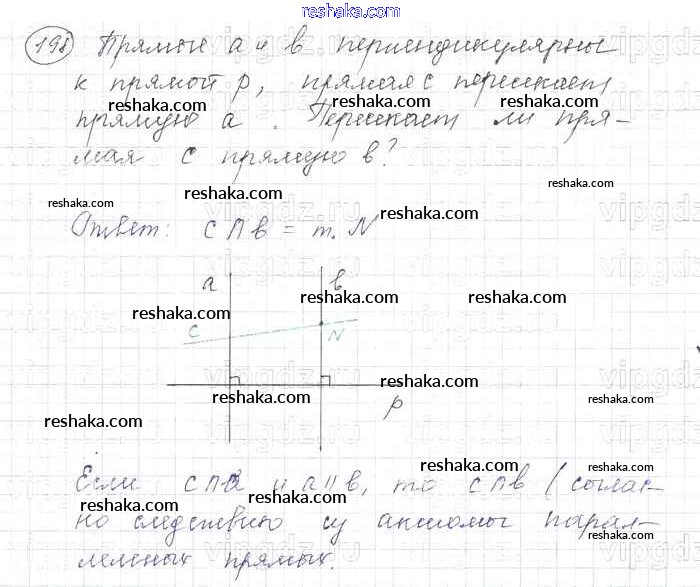 reshaka.com
198 Прямые a и b перпендикулярны
к прямой p, прямая c пересекает
reshaka.com reshaka.com
прямую a. Пересекает ли пря-
reshaka.com
мая c прямую b?
reshaka.com reshaka.com reshaka.com
reshaka.com
Ответ: c ∩ b = т. N
a b
reshaka.com reshaka.com
reshaka.com
c N
reshaka.com
reshaka.com reshaka.com
p
reshaka.com
reshaka.com
Если c ∩ a и a || b, то c ∩ b (соглас-
reshaka.com
но следствию из аксиомы парал-
reshaka.com
лельных прямых.
reshaka.com reshaka.com